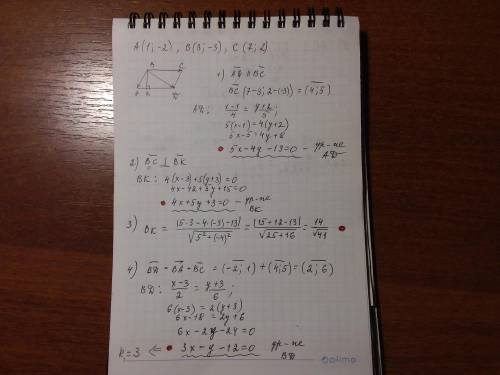 A(1;-2), B(3;-3), C(7;2)
B C
A K D
1) AD || BC
BC (7-3; 2-(-3)) = (4;5)
AD: (x-1)/4 = (y+2)/5;
5(x-1) = 4(y+2)
5x-5 = 4y+8
5x-4y-13=0 - ур-ие AD
2) BC ⊥ BK
BK: 4(x-3)+5(y+3)=0
4x-12+5y+15=0
4x+5y+3=0 - ур-ие BK
3) BK = |5·3-4·(-3)-13|/√(5²+(-4)²) = |15+12-13|/√(25+16) = 14/√41
4) BD = BA+BC = (-2;1)+(4;5) = (2;6)
BD: (x-3)/2 = (y+3)/6;
6(x-3) = 2(y+3)
6x-18 = 2y+6
6x-2y-24=0
K=3 ⇐ 3x-y-12=0 ур-ие BD